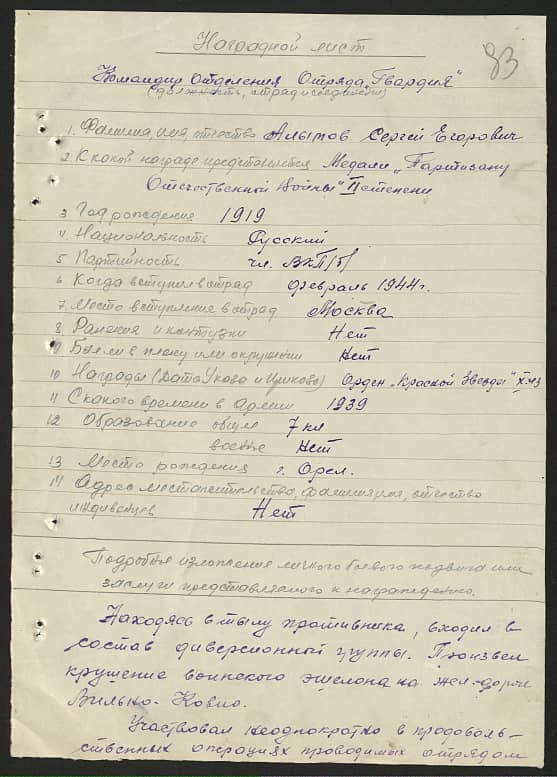 83
Наградной лист
Командир отделения Отряда "Гвардия"
(должность, отряд и соединение)
1. Фамилия, имя, отчество Алымов Сергей Егорович
2. К какой награде представляется Медали "Партизану
Отечественной Войны" II степени
3 Год рождения 1919
4. Национальность Русский
5 Партийность чл. ВКП/б/
6 Когда вступил в отряд февраль 1944 г.
7. Место вступление в отряд Москва
8 Ранения и контузии Нет
9 Были в плену или окружении Нет
10 Награды (Дата Указа и Приказа) Орден "Красной Звезды" X.43
11 С какого времени в Армии 1939
12 Образование общее 7 кл
военное Нет
13 Место рождения г. Орел.
14 Адрес местожительства, фамилия, имя, отчество
иждивенцев Нет
Подробное изложение личного боевого подвига или
заслуги представляемого к награждению.
Находясь в тылу противника, входил в
состав диверсионной группы. Произвел
крушение воинского эшелона на жел-дороге
Вильно-Ковно.
Участвовал неоднократно в продоволь-
ственных операциях проводимых отрядом